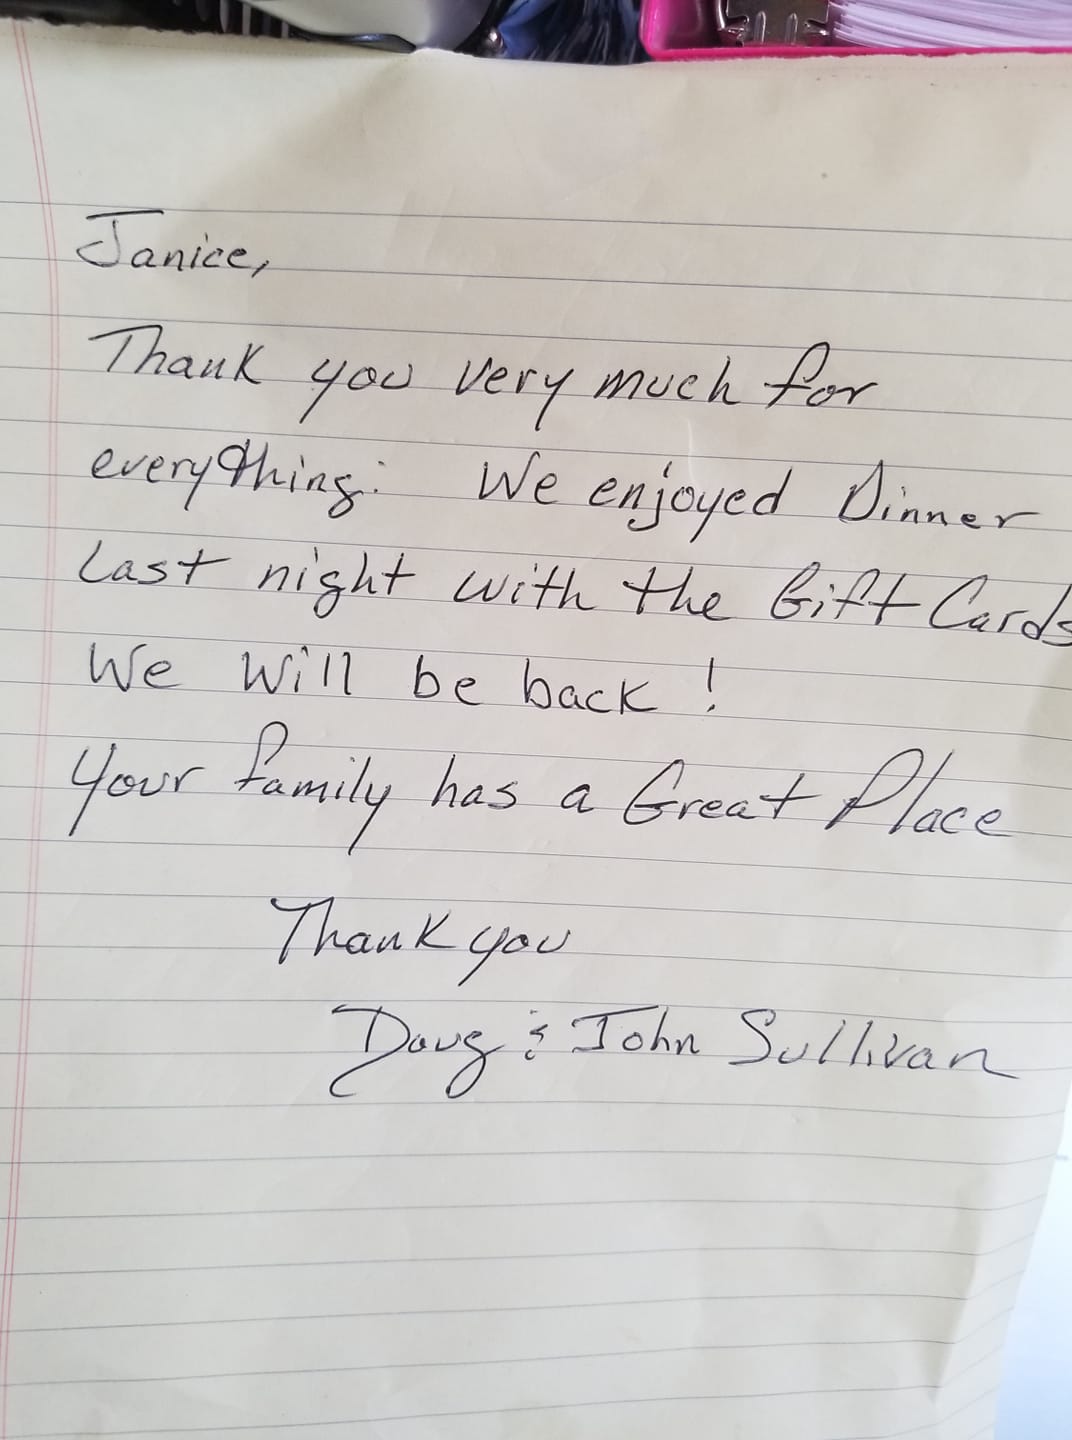 Janice,
Thank you very much for
everything. We enjoyed Dinner
Last night with the Gift Cards
We Will be back!
Your family has a Great Place
Thank you
Doug & John Sullivan